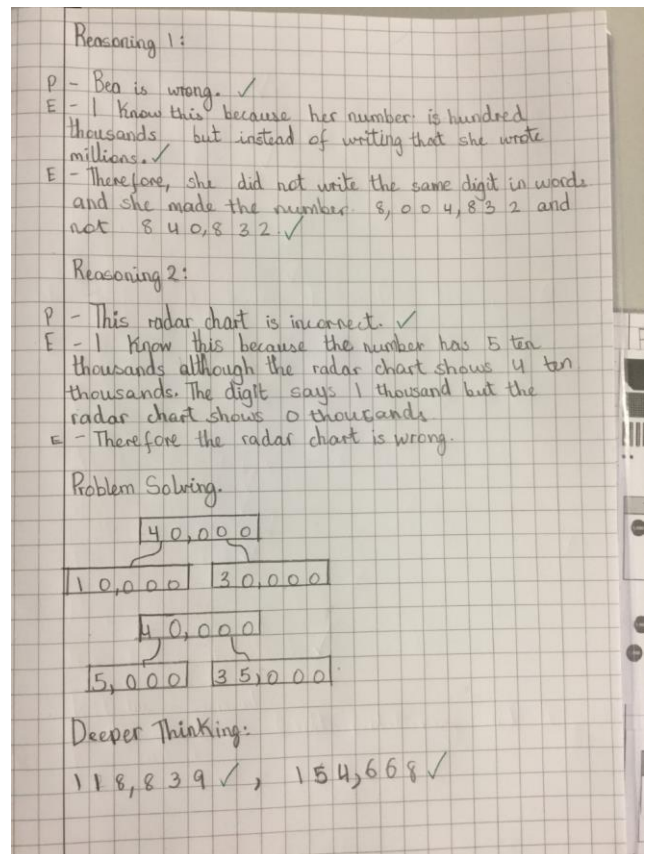 Reasoning 1:
P - Bea is wrong. ✓
E - I know this because her number is hundred
thousands but instead of writing that she wrote
millions. ✓
E - Therefore, she did not write the same digit in words
and she made the number 8,004,832 and
not 840,832. ✓
Reasoning 2:
P - This radar chart is incorrect. ✓
E - I know this because the number has 5 ten
thousands although the radar chart shows 4 ten
thousands. The digit says 1 thousand but the
radar chart shows 0 thousands
E - Therefore the radar chart is wrong.
Problem Solving.
40,000
10,000 30,000
40,000
5,000 35,000
Deeper Thinking:
118,839 ✓, 154,668 ✓